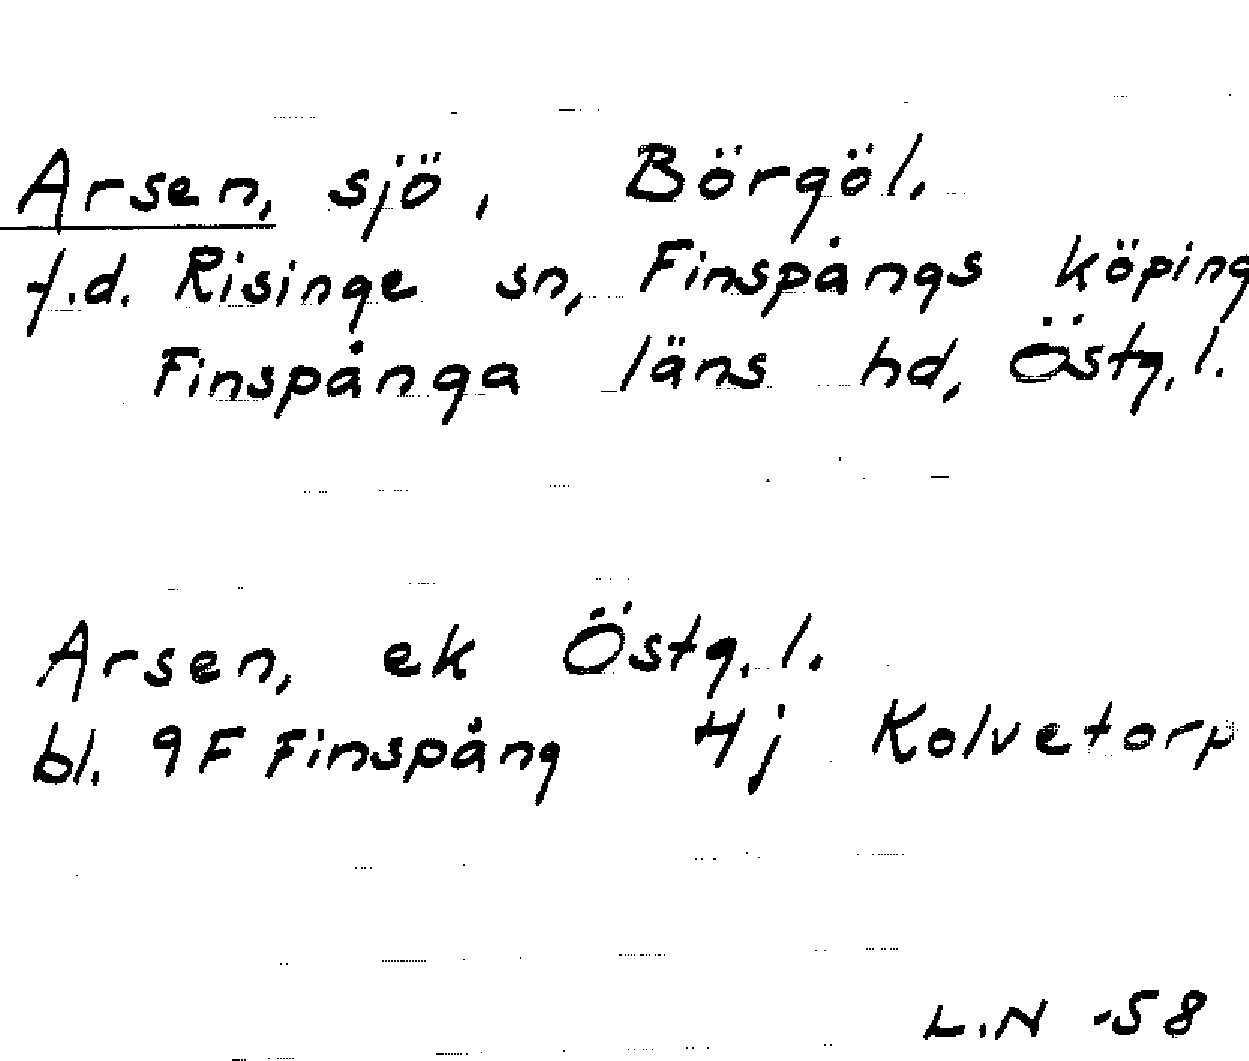 Arsen, sjö, Börgöl.
f.d. Risinge sn, Finspångs köping
Finspånga läns hd, Östg.l.
Arsen, ek Östg.l.
bl. 9F Finspång 4j Kolvetorp
L.N -58